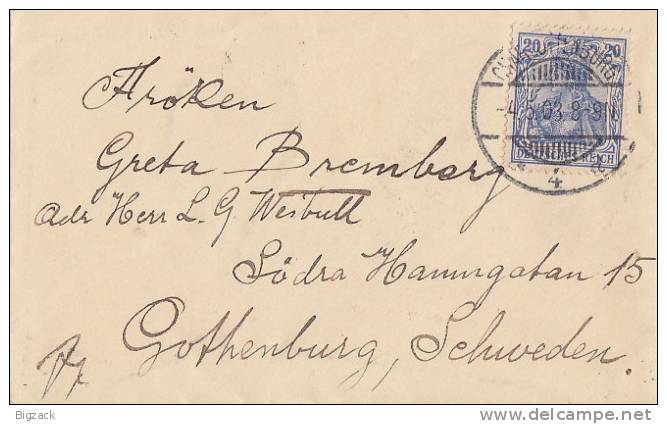 20 20
DEUTSCHES REICH
-4.5.03.8-9N.
4
Fröken
Greta Bremberg
adr Herr L. G Weibull
Södra Hamngatan 15
Gothenburg, Schweden.
Bigzack
delcampe.net